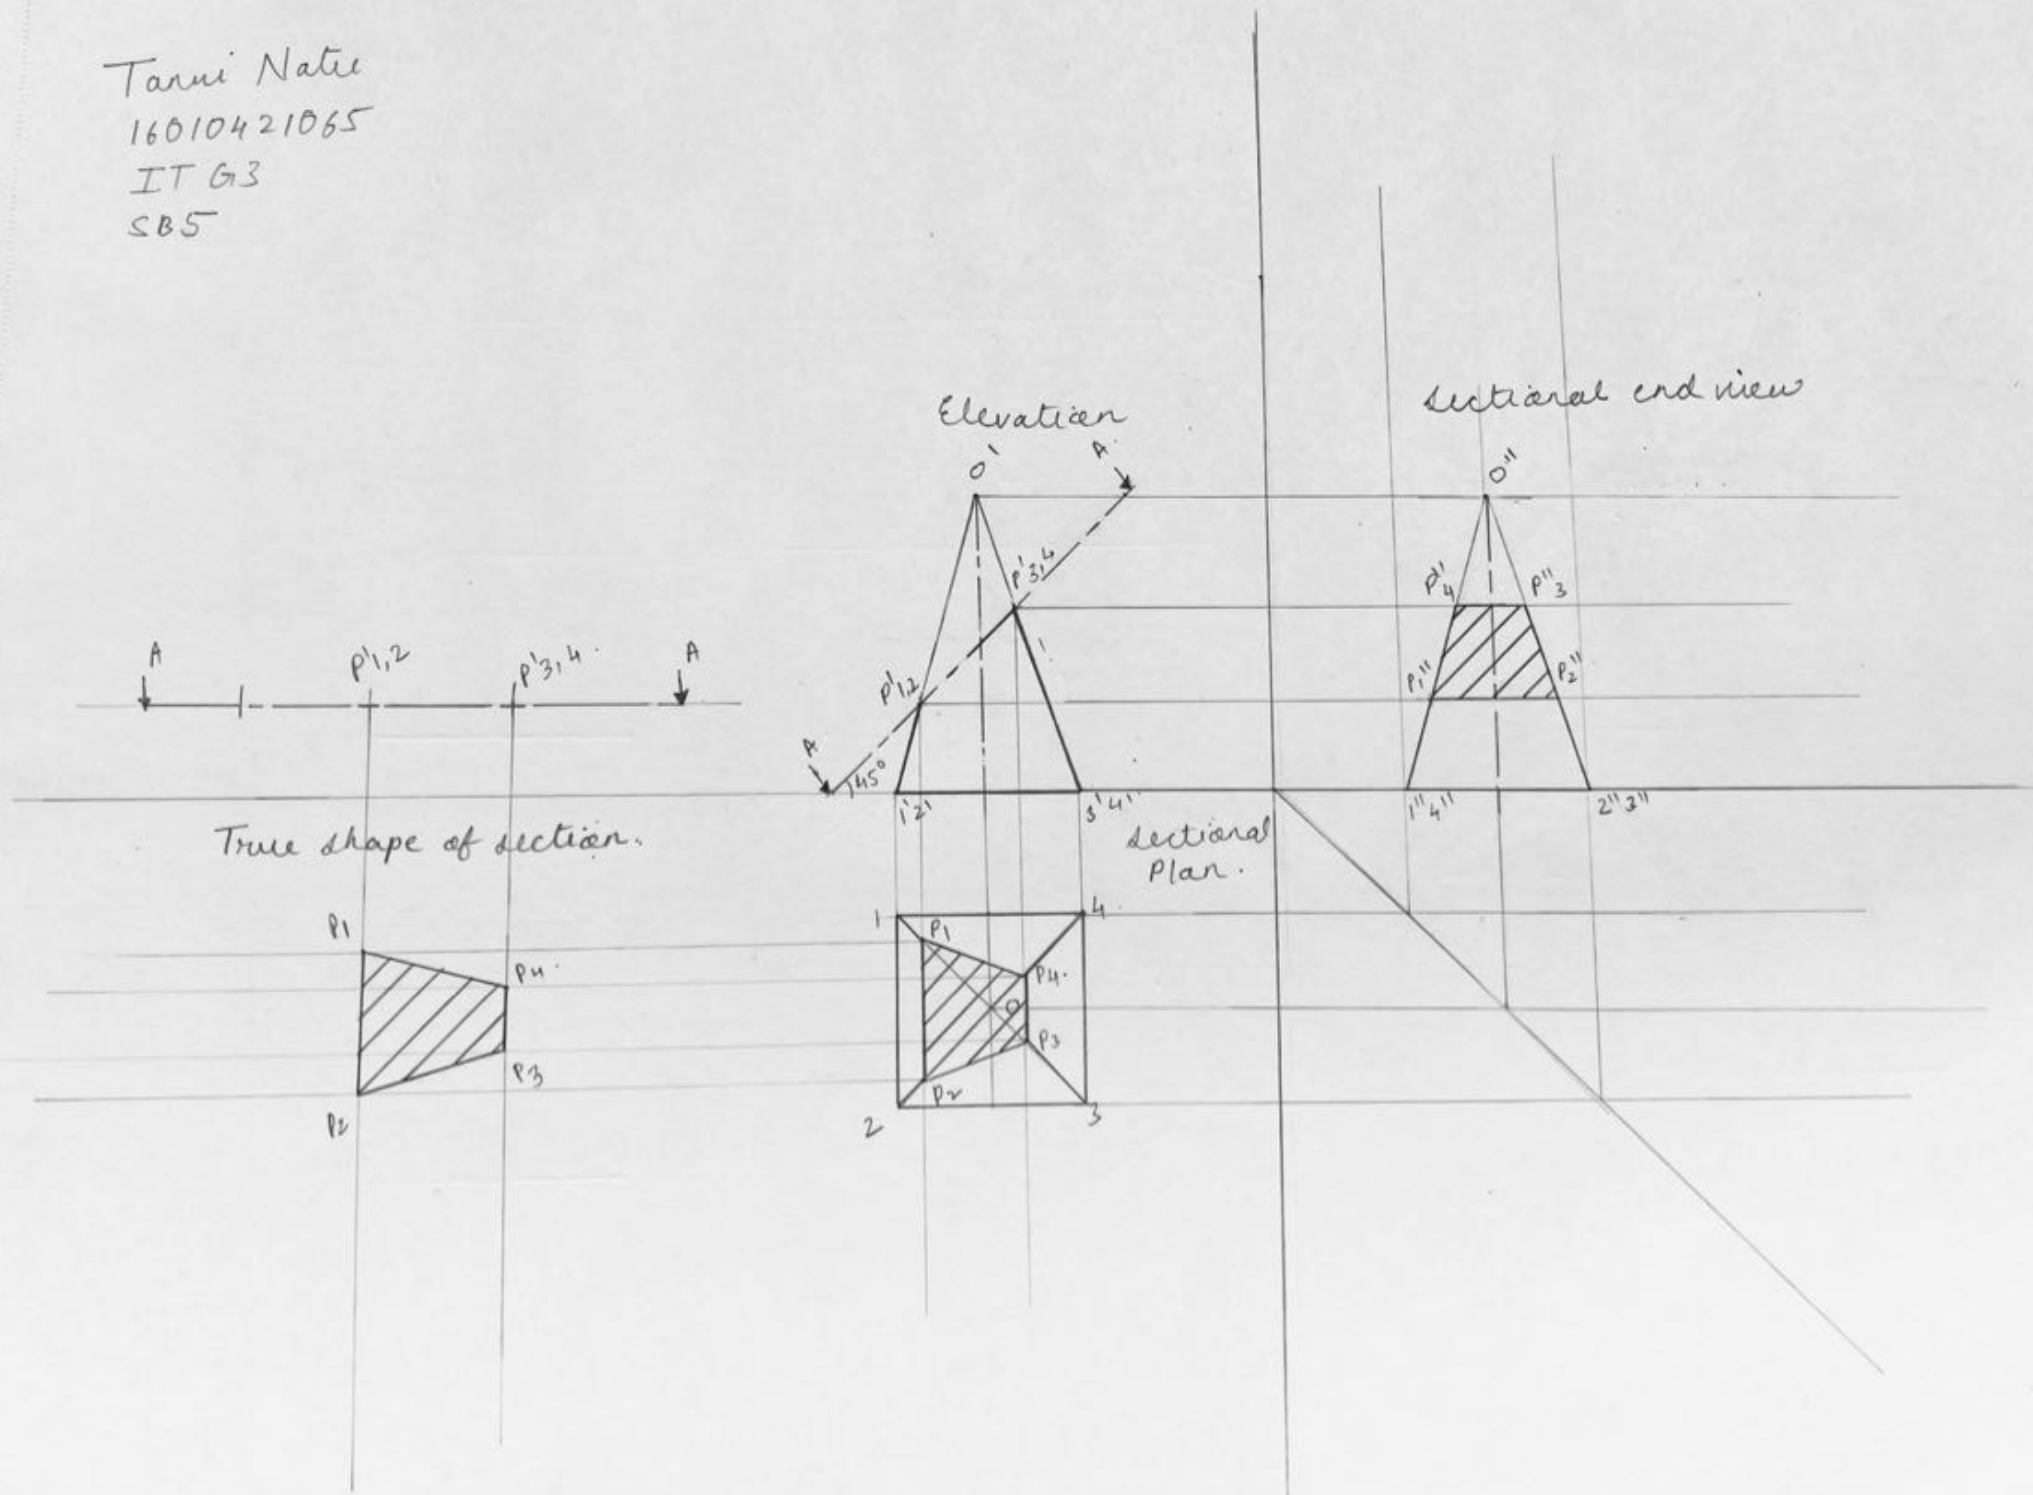 Tanui Natu
16010421065
IT G3
SB5
Elevation
sectional end view
O'
A
O"
P'3,4
P"4
P"3
A
P'1,2
P'3,4
A
P'1,2
P1"
P2"
A
45°
1'2'
3'4'
1"4"
2"3"
True shape of section.
sectional
Plan.
1
4
P1
P1
P4
P4
O
P3
P3
P2
P2
2
3